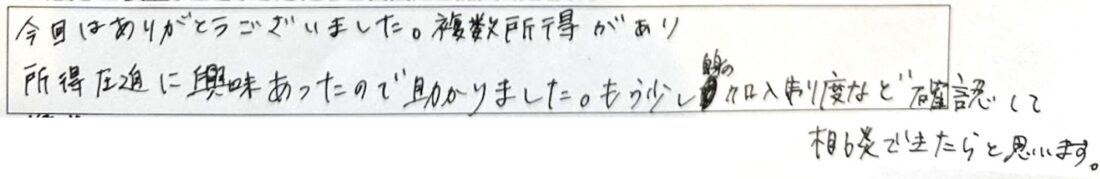 今回はありがとうございました。複数所得があり
所得圧迫に興味あったので助かりました。もう少し 加入制度など確認して
相談できたらと思います。